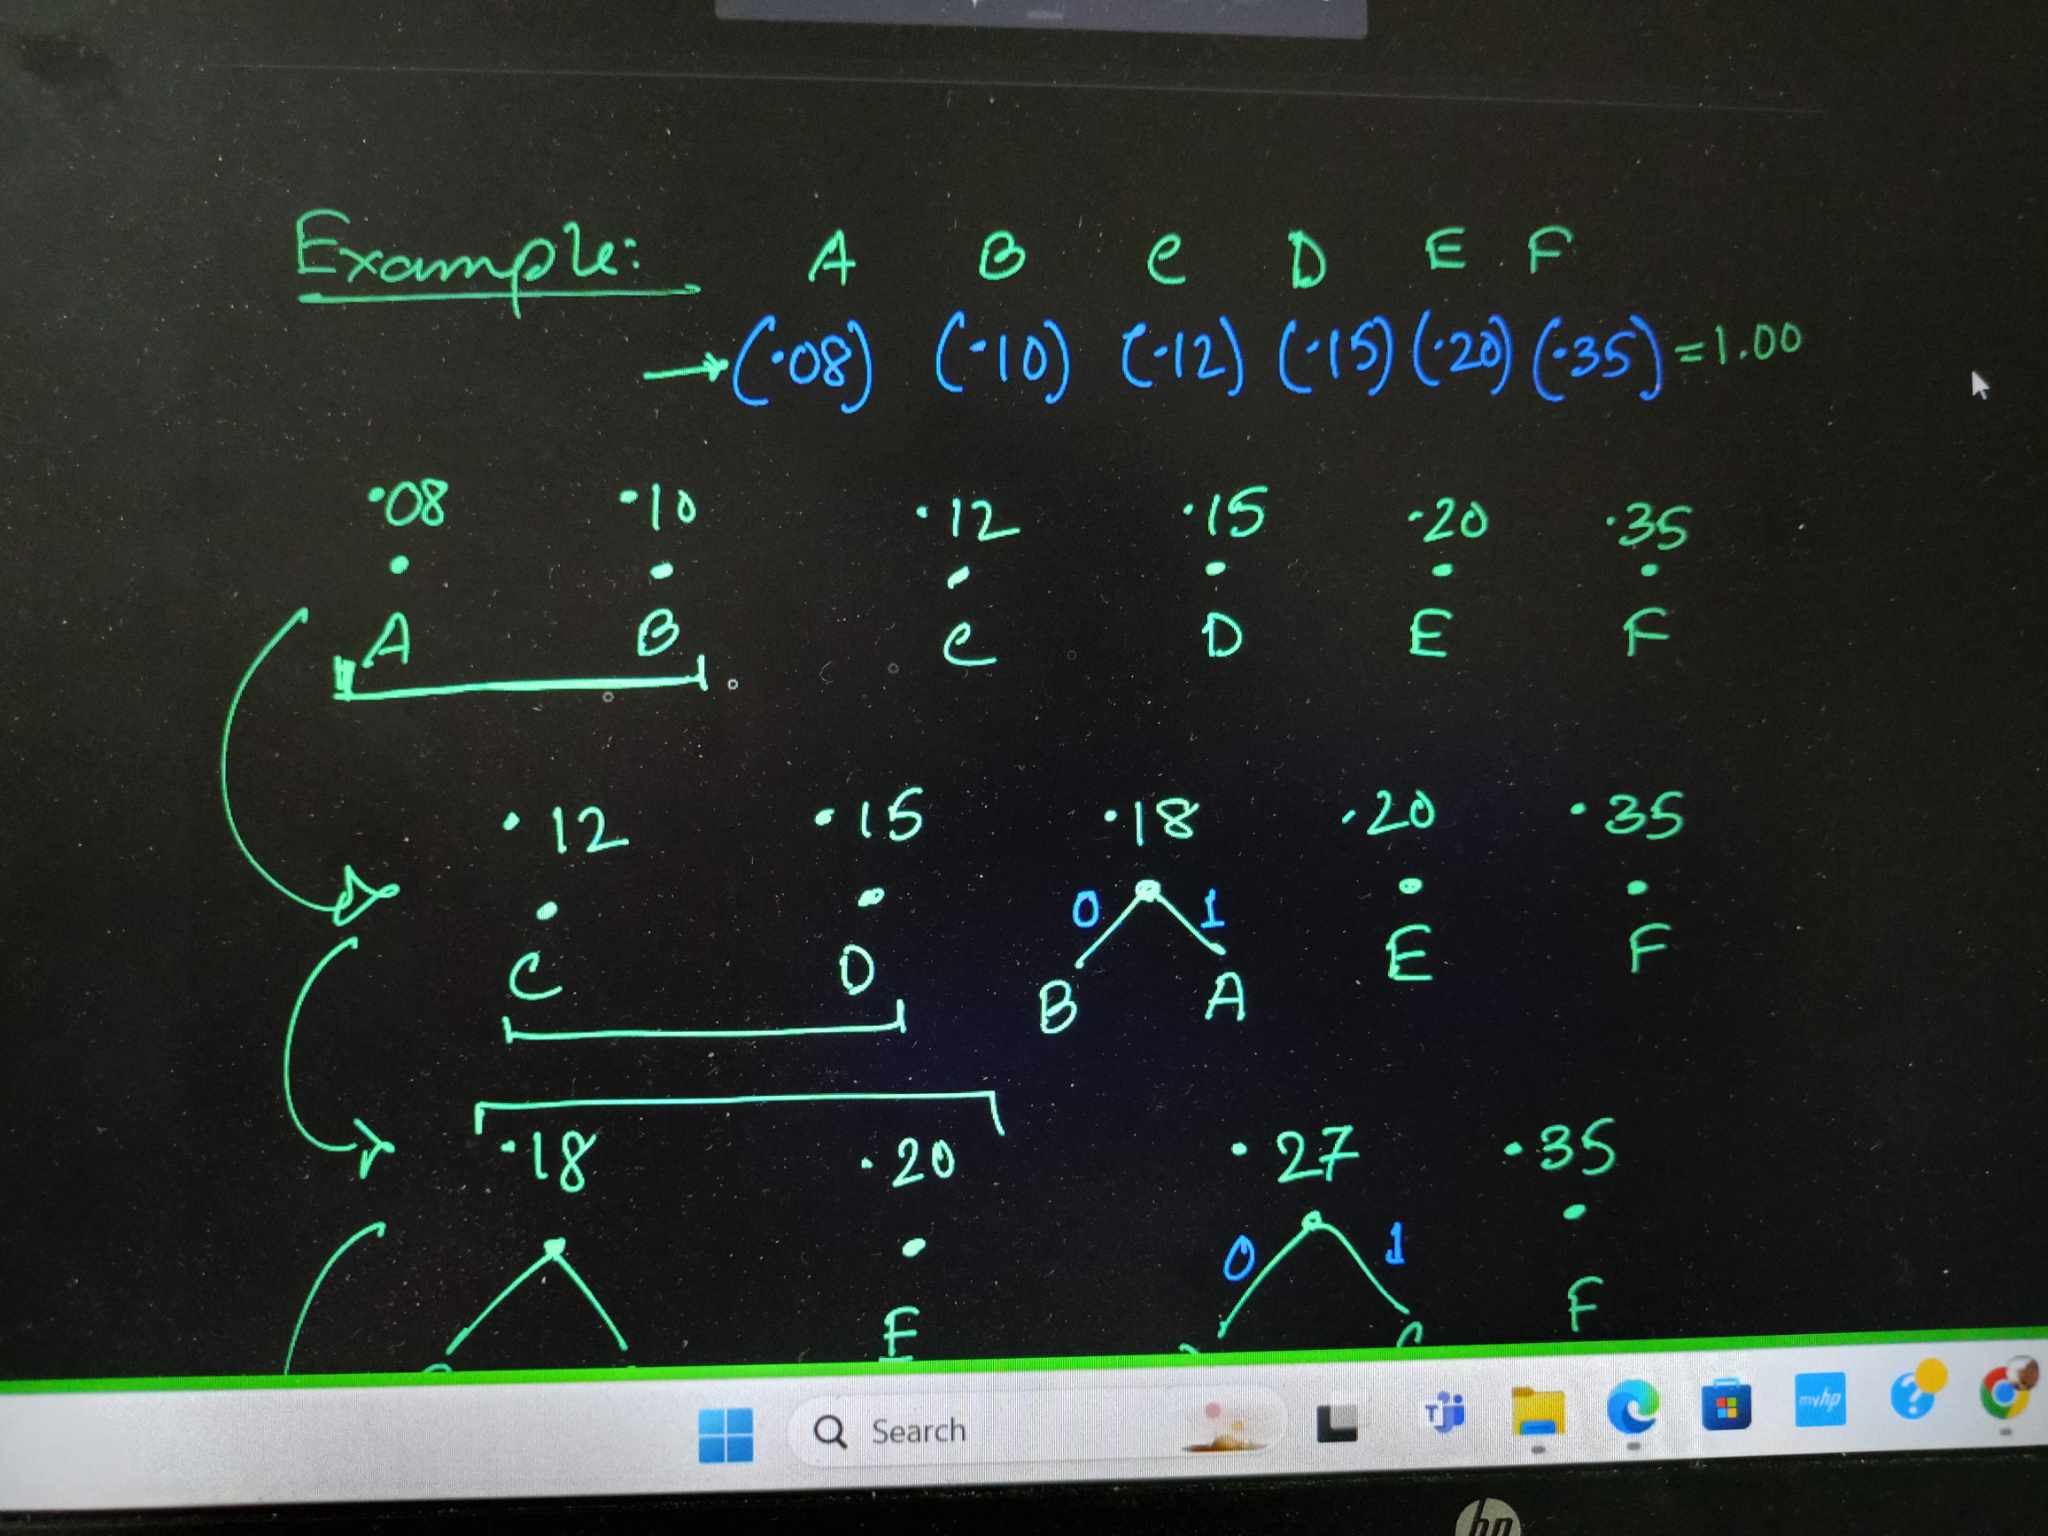 Example: A B C D E F
→ (.08) (.10) (.12) (.15) (.20) (.35) = 1.00
.08 .10 .12 .15 .20 .35
A B C D E F
.12 .15 .18 .20 .35
0 1
C D E F
B A
.18 .20 .27 .35
0 1
E F
Search
myhp
hp